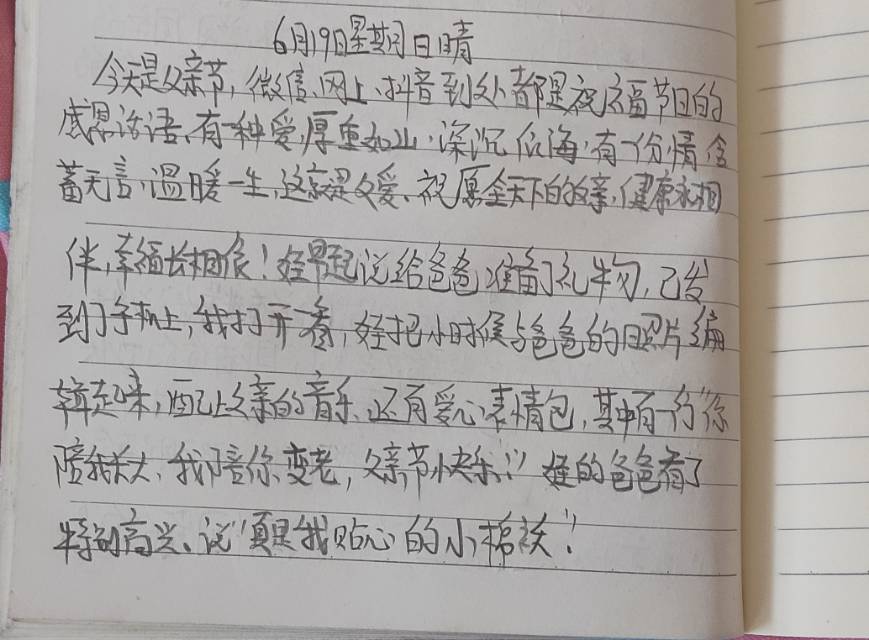 6月19日星期日晴
今天是父亲节,微信、网上、抖音到处都是祝福节日的
感恩话语、有一种爱,厚重如山,深沉似海,有一份情含
蓄无言,温暖一生,这就是父爱、祝愿全天下的父亲,健康永相
伴,幸福长相依!娃早起说给爸爸准备了礼物,已发
到了手机上,我打开一看,娃把小时候与爸爸的照片编
辑起来,配上父亲的音乐、还有爱心表情包,其中有一行"你
陪我长大、我陪你变老,父亲节快乐!"娃的爸爸看了
特别高兴、说"真是我贴心的小棉袄"!